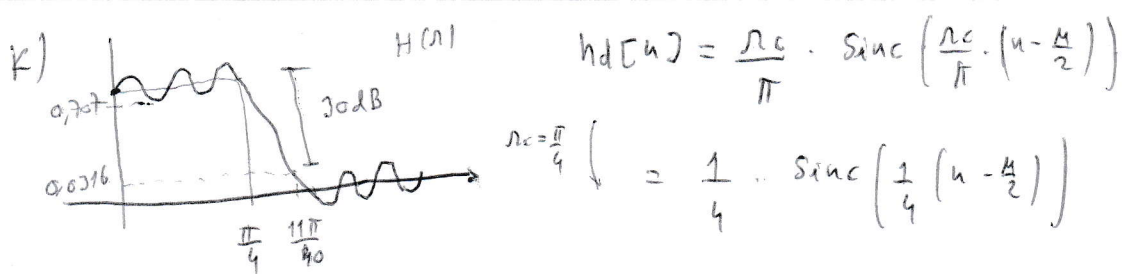 K)
H(Ω)
0,707
30dB
0,0316
π/4
11π/40
hd[n] = Ωc/π · Sinc(Ωc/π · (n - M/2))
Ωc = π/4
= 1/4 · Sinc(1/4 (n - M/2))